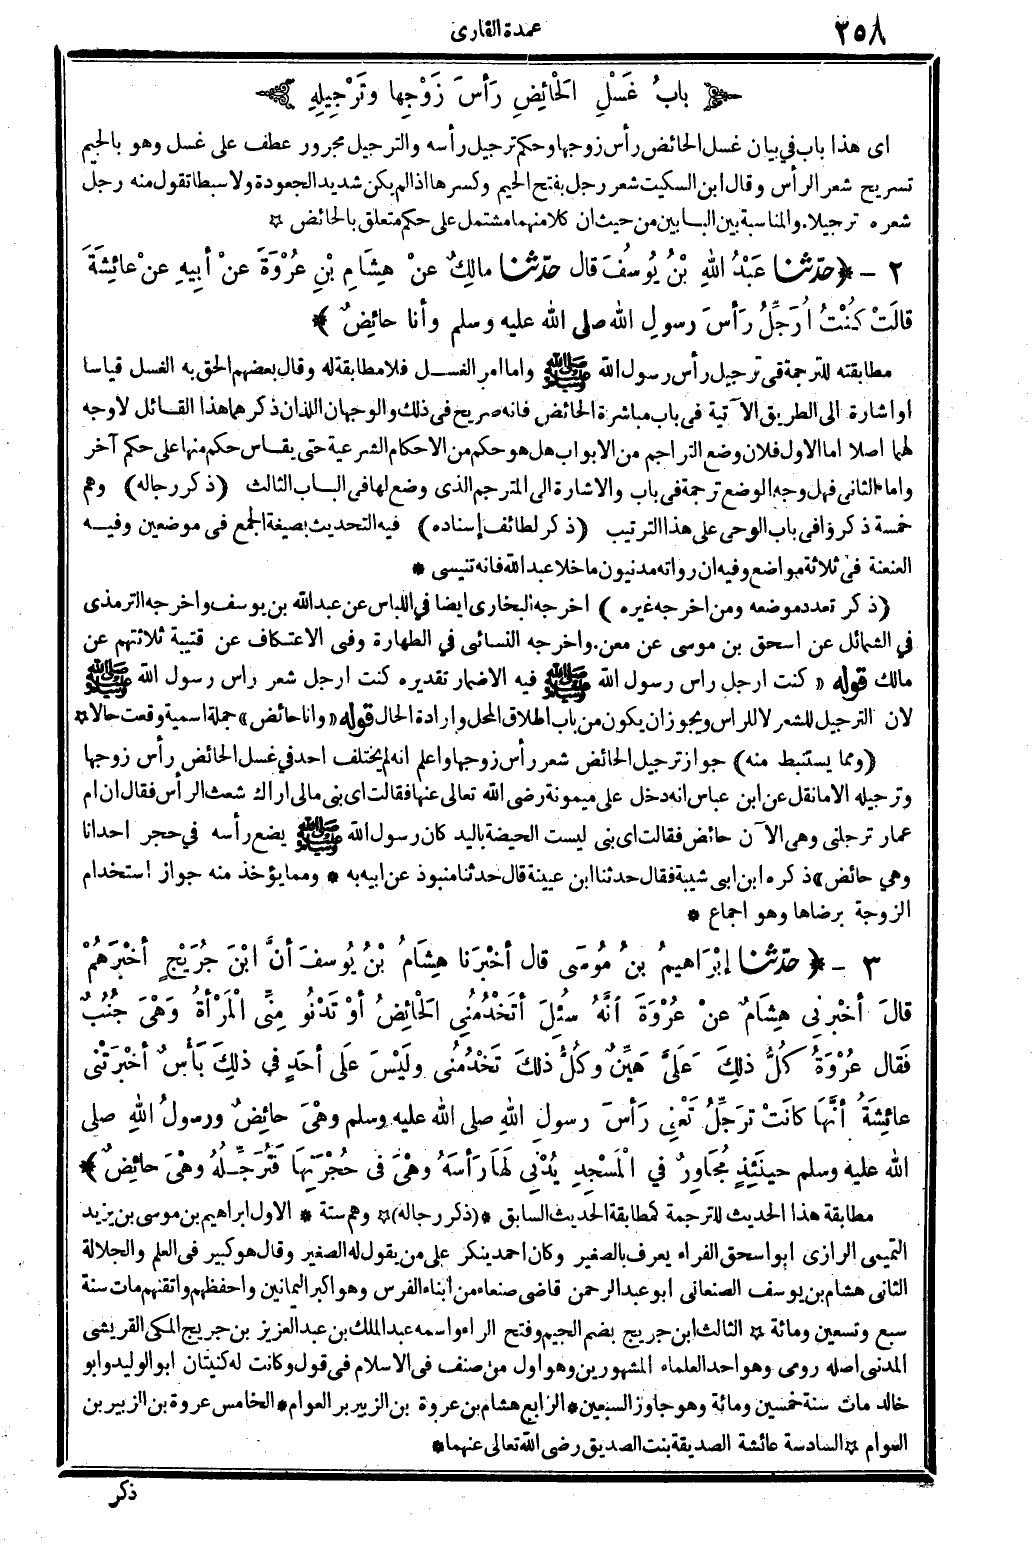 ٢٥٨
عمدة القارى
بابُ غَسْلِ الحَائِضِ رَأْسَ زَوْجِها وتَرْجِيلِهِ
اى هذا باب في بيان غسل الحائض رأس زوجها وحكم ترجيل رأسه والترجيل مجرور عطف على غسل وهو بالجيم
تسريح شعر الرأس وقال ابن السكيت شعر رجل بفتح الجيم وكسرها اذا لم يكن شديد الجعودة ولا سبطا تقول منه رجل
شعره ترجيلا. والمناسبة بين البابين من حيث ان كلا منهما مشتمل على حكم متعلق بالحائض ☆
٢ - ﴿حدّثنا عَبْدُ اللهِ بْنُ يُوسُفَ قال حدّثنا مالِكٌ عنْ هِشَامِ بْنِ عُرْوَةَ عنْ أبِيهِ عنْ عائِشَةَ
قالَتْ كُنْتُ أُرَجِّلُ رَأْسَ رسولِ اللهِ صلى الله عليه وسلم وأنا حائِضٌ﴾
مطابقته للترجمة في ترجيل رأس رسول الله ﷺ واما امر الغسل فلا مطابقة له وقال بعضهم الحق به الغسل قياسا
او اشارة الى الطريق الآتية في باب مباشرة الحائض فانه صريح في ذلك والوجهان اللذان ذكرهما هذا القائل لا وجه
لهما اصلا اما الاول فلان وضع التراجم من الابواب هل هو حكم من الاحكام الشرعية حتى يقاس حكم منها على حكم آخر
واما الثانى فهل وجه الوضع ترجمة في باب والاشارة الى المترجم الذى وضع لها في الباب الثالث (ذكر رجاله) وهم
خمسة ذكروا في باب الوحى على هذا الترتيب (ذكر لطائف إسناده) فيه التحديث بصيغة الجمع في موضعين وفيه
العنعنة في ثلاثة مواضع وفيه ان رواته مدنيون ما خلا عبد الله فانه تنيسى *
(ذكر تعدد موضعه ومن اخرجه غيره) اخرجه البخارى ايضا في اللباس عن عبد الله بن يوسف واخرجه الترمذى
في الشمائل عن اسحق بن موسى عن معن. واخرجه النسائى في الطهارة وفى الاعتكاف عن قتيبة ثلاثتهم عن
مالك قوله «كنت ارجل راس رسول الله ﷺ فيه الاضمار تقديره كنت ارجل شعر راس رسول الله ﷺ
لان الترجيل للشعر لا للراس ويجوز ان يكون من باب اطلاق المحل وارادة الحال قوله «وانا حائض» جملة اسمية وقعت حالا ☆
(ومما يستنبط منه) جواز ترجيل الحائض شعر رأس زوجها واعلم انه لم يختلف احد في غسل الحائض رأس زوجها
وترجيله الا ما نقل عن ابن عباس انه دخل على ميمونة رضى الله تعالى عنها فقالت اى بنى مالى اراك شعث الرأس فقال ان ام
عمار ترجلنى وهى الآن حائض فقالت اى بنى ليست الحيضة باليد كان رسول الله ﷺ يضع رأسه في حجر احدانا
وهي حائض» ذكره ابن ابى شيبة فقال حدثنا ابن عيينة قال حدثنا منبوذ عن ابيه به * ومما يؤخذ منه جواز استخدام
الزوجة برضاها وهو اجماع *
٣ - ﴿حدّثنا إبْرَاهِيمُ بنُ مُوسَى قال أخْبَرَنا هِشَامُ بْنُ يُوسفَ أنَّ ابْنَ جُرَيْجٍ أخْبَرَهُمْ
قالَ أخْبرنِي هِشَامٌ عنْ عُرْوَةَ أنَّهُ سُئِلَ أتَخْدُمُنِي الحَائِضُ أوْ تَدْنُو مِنِّى الْمَرْأةُ وَهْىَ جُنُبٌ
فَقال عُرْوَةُ كُلُّ ذلِكَ عَلَىَّ هَيِّنٌ وكُلُّ ذلكَ تَخْدُمُنى ولَيْسَ عَلَى أحَدٍ فِي ذلِكَ بَأْسٌ أخْبَرَتْنى
عائِشَةُ أنَّها كانَتْ تُرَجِّلُ تَعْنِى رَأسَ رسولِ اللهِ صلى الله عليه وسلم وهْىَ حائِضٌ ورسولُ اللهِ صلى
الله عليه وسلم حينَئِذٍ مُجاوِرٌ فِي الْمَسْجِدِ يُدْنِى لَها رَأسَهُ وهْىَ فى حُجْرَتِهَا فَتُرَجِّلُهُ وهْىَ حائِضٌ﴾ *
مطابقة هذا الحديث للترجمة كمطابقة الحديث السابق * (ذكر رجاله) ☆ وهم ستة * الاول ابراهيم بن موسى بن يزيد
التميمى الرازى ابو اسحق الفراء يعرف بالصغير وكان احمد ينكر على من يقول له الصغير وقال هو كبير في العلم والجلالة
الثانى هشام بن يوسف الصنعانى ابو عبد الرحمن قاضى صنعاء من ابناء الفرس وهو اكبر اليمانين واحفظهم واتقنهم مات سنة
سبع وتسعين ومائة ☆ الثالث ابن جريج بضم الجيم وفتح الراء واسمه عبد الملك بن عبد العزيز بن جريج المكى القريشى
المدنى اصله رومى وهو احد العلماء المشهورين وهو اول من صنف في الاسلام في قول وكانت له كنيتان ابو الوليد وابو
خالد مات سنة خمسين ومائة وهو جاوز السبعين * الرابع هشام بن عروة بن الزبير بر العوام * الخامس عروة بن الزبير بن
العوام ☆ السادسة عائشة الصديقة بنت الصديق رضى الله تعالى عنهما *
ذكر